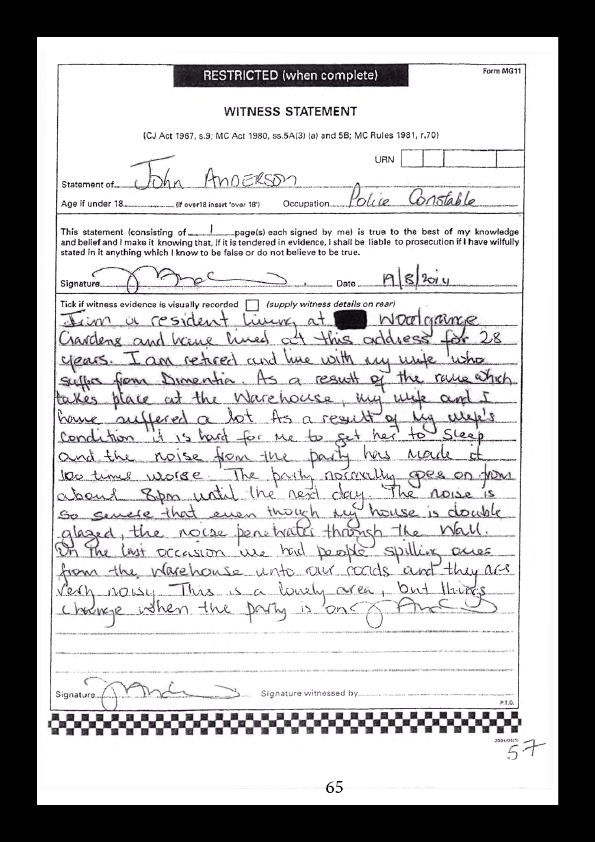 RESTRICTED (when complete)
Form MG11
WITNESS STATEMENT
(CJ Act 1967, s.9; MC Act 1980, ss.5A(3) (a) and 5B; MC Rules 1981, r.70)
URN
Statement of John ANDERSON
Age if under 18 (if over18 insert 'over 18') Occupation Police Constable
This statement (consisting of 1 page(s) each signed by me) is true to the best of my knowledge
and belief and I make it knowing that, if it is tendered in evidence, I shall be liable to prosecution if I have wilfully
stated in it anything which I know to be false or do not believe to be true.
Signature Date 19/8/2014
Tick if witness evidence is visually recorded (supply witness details on rear)
I im a resident living at Woolgrange
Gardens and have lived at this address for 28
years. I am retired and live with my wife who
suffs from Dimentia. As a result of the rave which
takes place at the Warehouse, my wife and I
have suffered a lot As a result of my wife's
Condition it is hard for me to get her to Sleep
and the noise from the party has made it
100 times worse. The party normally goes on from
about 8pm until the next day. The noise is
so severe that even though my house is double
glazed, the noise penetrates through the Wall.
On the last occasion we had people spilling over
from the warehouse unto our roads and they are
very noisy. This is a lovely area, but things
change when the party is on.
Signature Signature witnessed by
P.T.O.
2004/05(1)
57
65